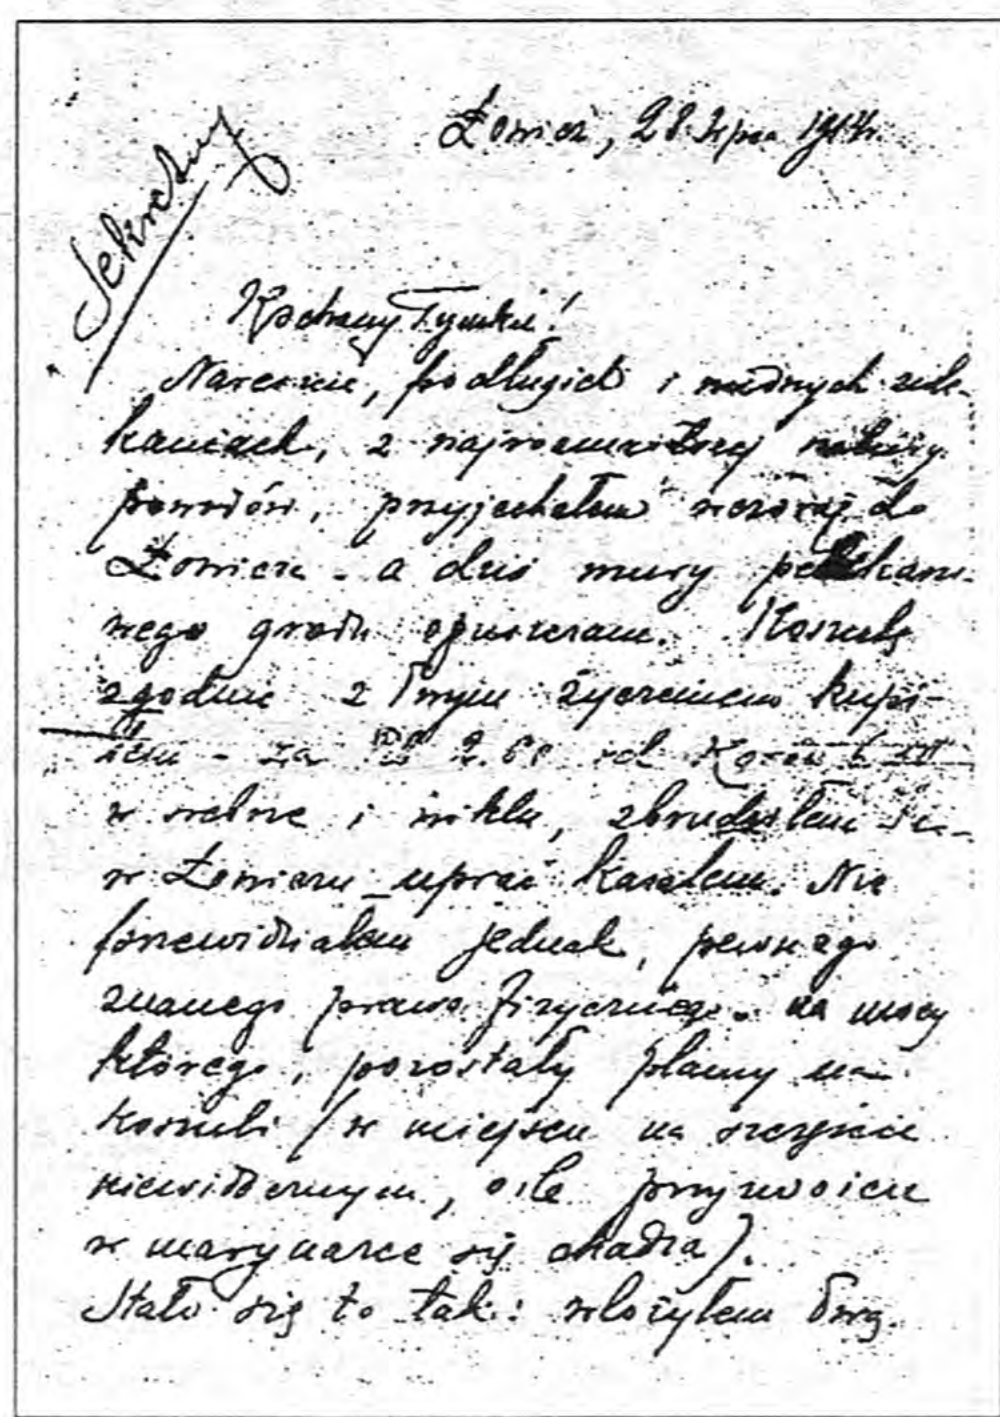 Łowicz, 28 lipca 1914 r.
Sekretny
Kochany Tymku!
Nareszcie, po długich i nudnych zale-
kaniach, z najrozmaitszej natury
powodów, przyjechałem wczoraj do
Łowicza - a dziś mury pelikano-
wego grodu opuszczam. Koszulę
zgodnie z Twym życzeniem kupi-
łem - za Rb 2.60
w srebrze i niklu, zbrudziłem i
w Łowiczu uprać kazałem. Nie
przewidziałem jednak, pewnego
znanego prawa fizycznego - na mocy
którego, pozostały plamy na
koszuli (w miejscu na szczęście
niewidocznym, o ile przyzwoicie
w marynarce się chadza).
Stało się to tak: włożyłem Twą